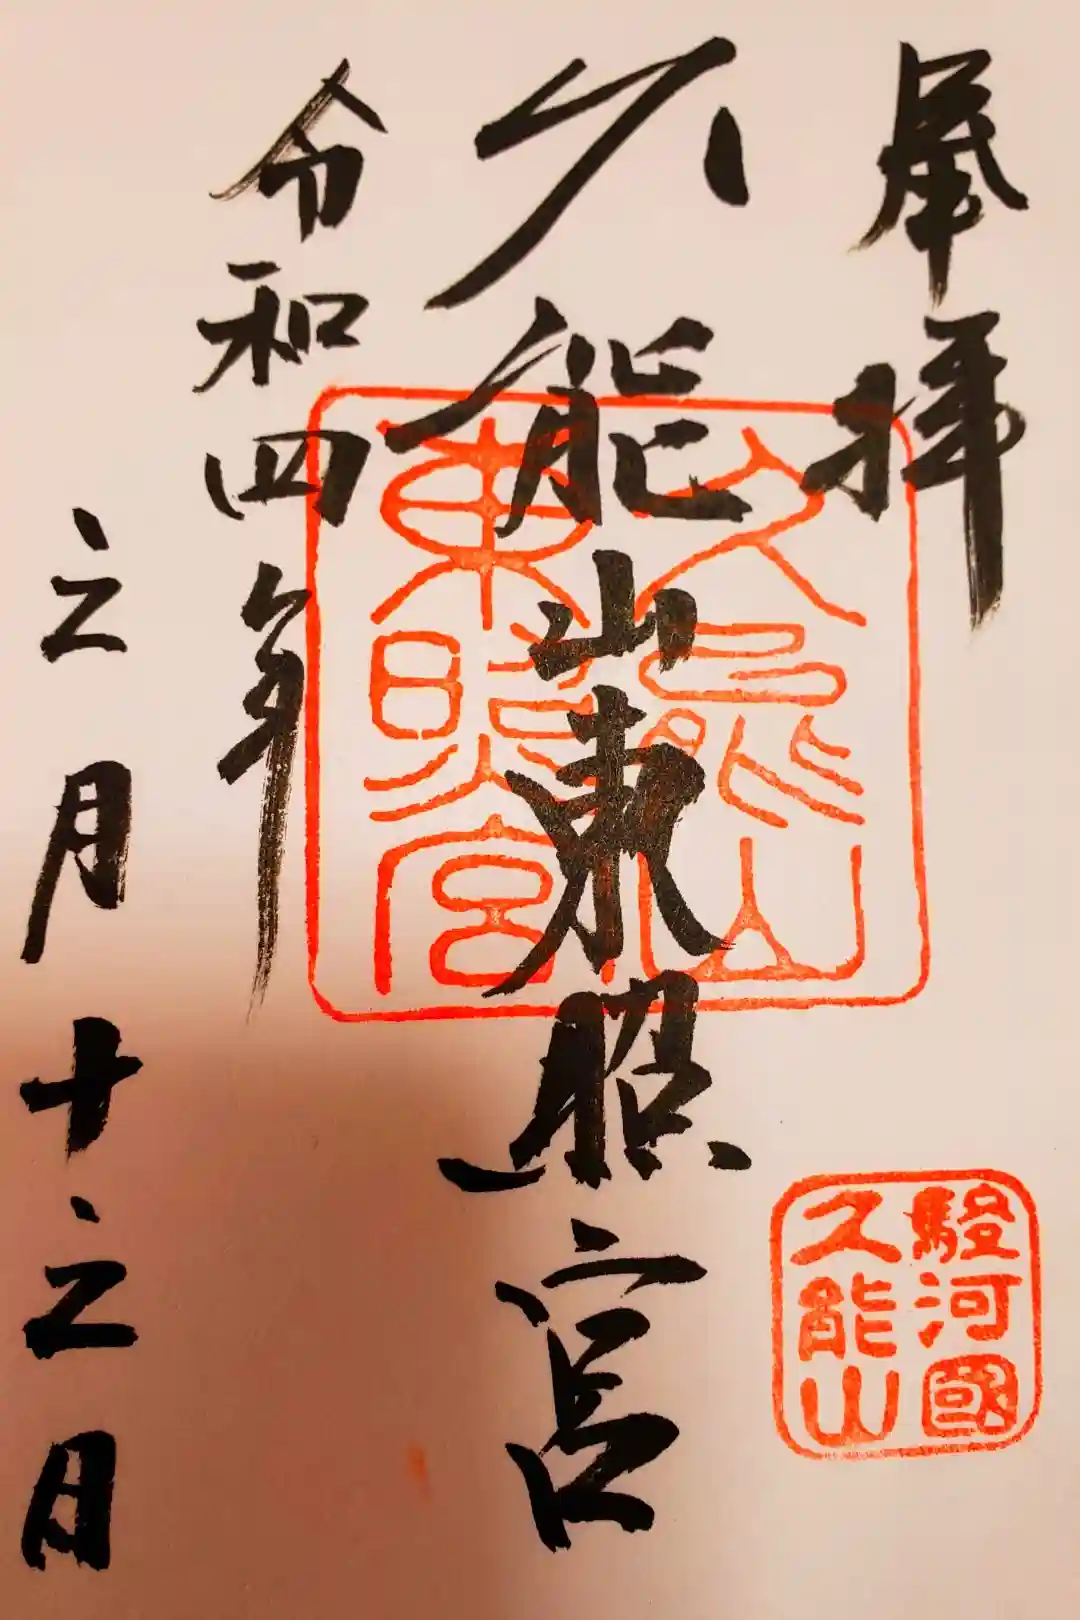 奉拝
久能山東照宮
令和四年
三月十三日
久能山
東照宮
駿河國
久能山